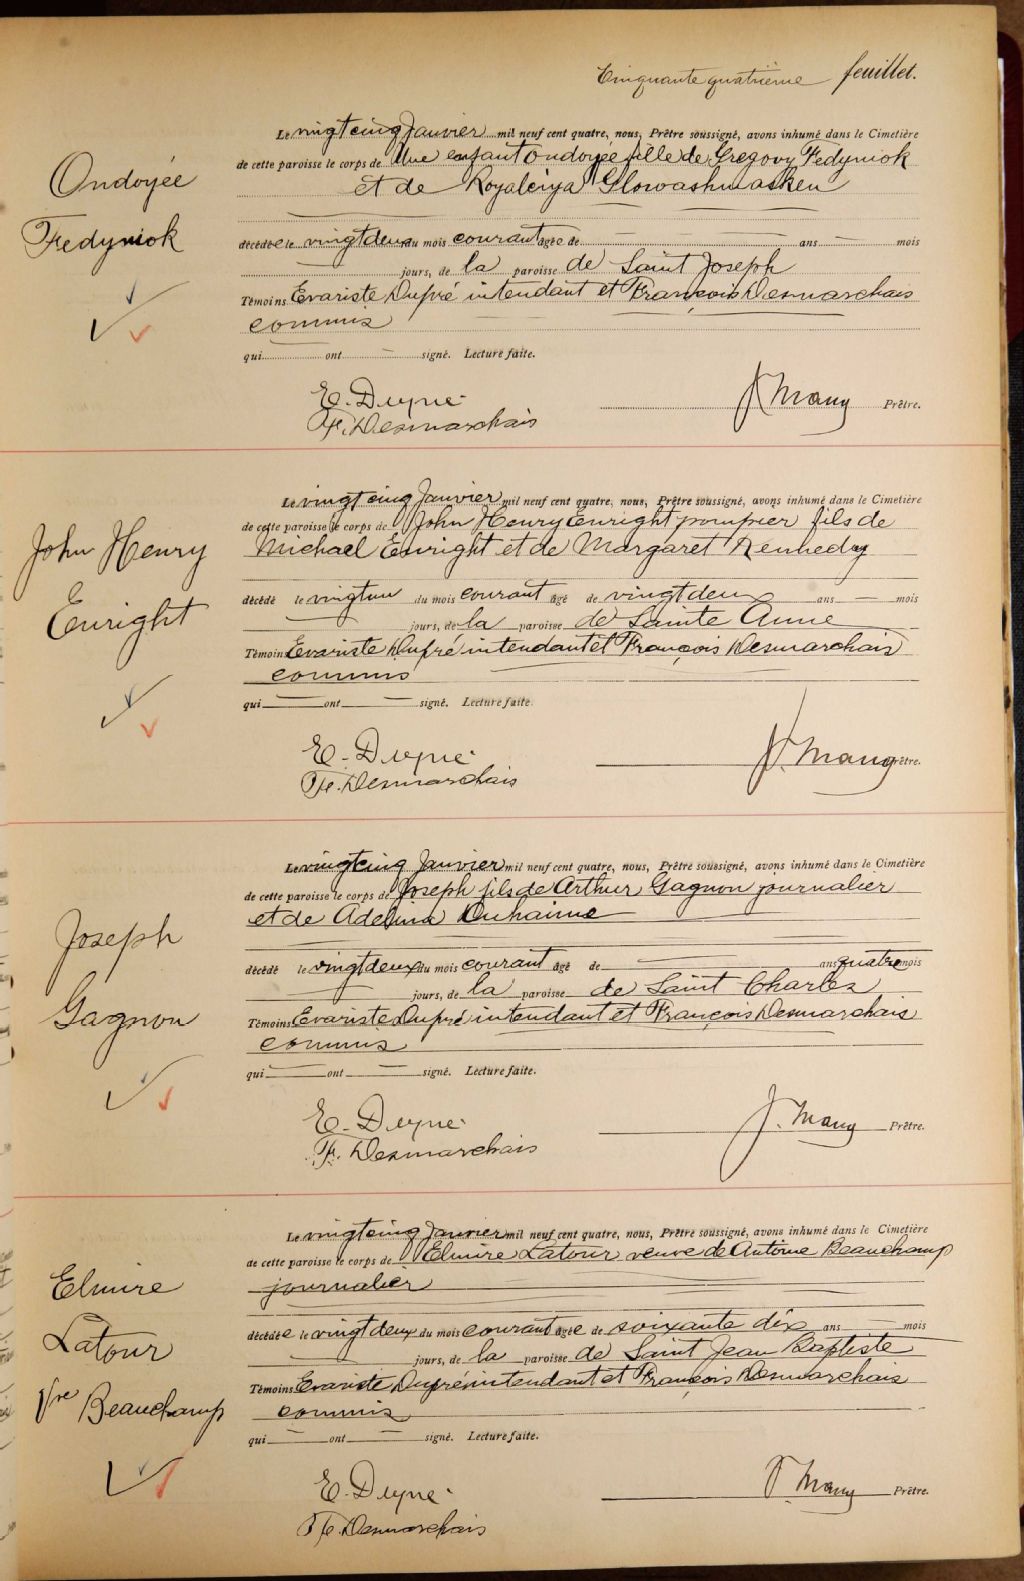 Cinquante quatrième feuillet.
Ondoyée
Fedyniok
Le vingt cinq Janvier mil neuf cent quatre, nous, Prêtre soussigné, avons inhumé dans le Cimetière
de cette paroisse le corps de Une enfant ondoyée fille de Gregory Fedyniok
et de
décédée le vingt deux du mois courant agée de — ans — mois
— jours, de la paroisse de Saint Joseph
Témoins Evariste Dupré intendant et François Desmarchais
commis
qui ont — signé. Lecture faite.
E. Dupré
F. Desmarchais
Prêtre.
John Henry
Enright
Le vingt cinq Janvier mil neuf cent quatre, nous, Prêtre soussigné, avons inhumé dans le Cimetière
de cette paroisse le corps de John Henry Enright pompier fils de
Michael Enright et de Margaret Kennedy
décédé le vingt un du mois courant âgé de vingt deux ans — mois
— jours, de la paroisse de Sainte Anne
Témoins Evariste Dupré intendant et François Desmarchais
commis
qui — ont — signé. Lecture faite.
E. Dupré
F. Desmarchais
Prêtre.
Joseph
Gagnon
Le vingt cinq Janvier mil neuf cent quatre, nous, Prêtre soussigné, avons inhumé dans le Cimetière
de cette paroisse le corps de Joseph fils de Arthur Gagnon journalier
et de Adelina Duhaime
décédé le vingt deux du mois courant âgé de — ans quatre mois
— jours, de la paroisse de Saint Charles
Témoins Evariste Dupré intendant et François Desmarchais
commis
qui — ont — signé. Lecture faite.
E. Dupré
F. Desmarchais
Prêtre.
Elmire
Latour
Vve Beauchamp
Le vingt cinq Janvier mil neuf cent quatre, nous, Prêtre soussigné, avons inhumé dans le Cimetière
de cette paroisse le corps de Elmire Latour veuve de Antoine Beauchamp
journalier
décédée le vingt deux du mois courant agée de soixante dix ans — mois
— jours, de la paroisse de Saint Jean Baptiste
Témoins Evariste Dupré intendant et François Desmarchais
commis
qui — ont — signé. Lecture faite.
E. Dupré
F. Desmarchais
Prêtre.